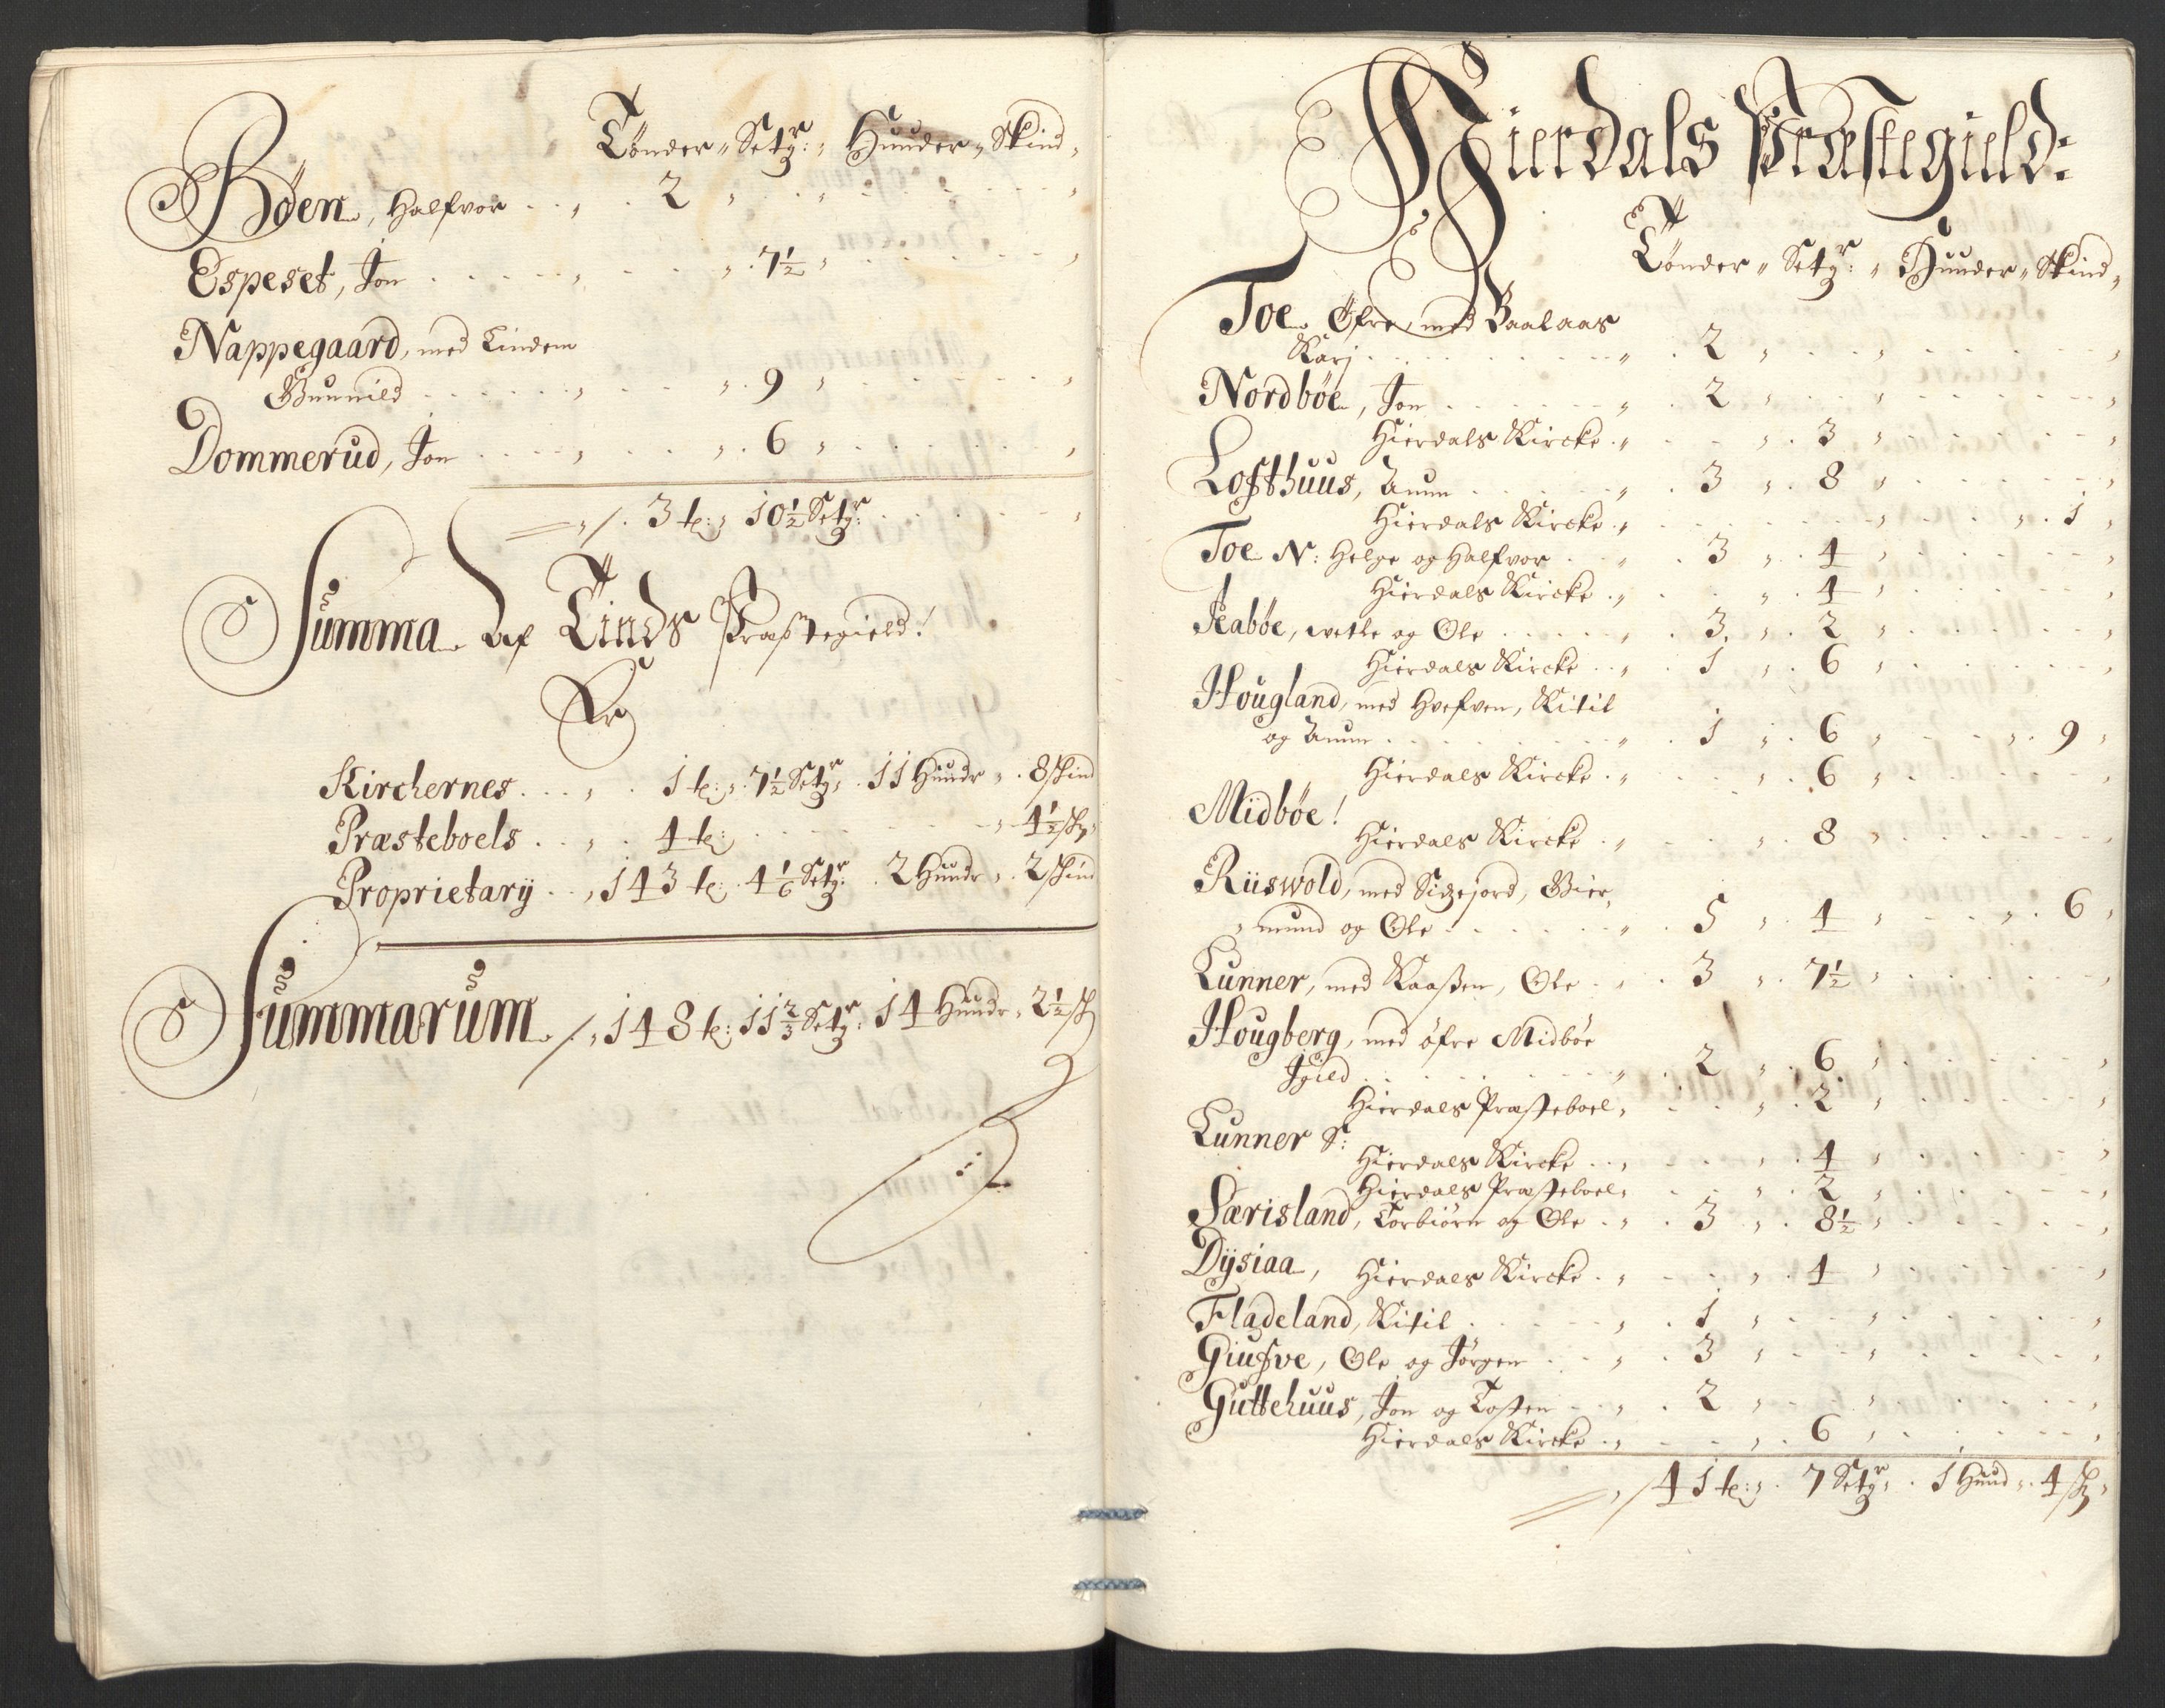 Tønder " Setgr: " Hunder " Skind "
Bøen, Halfvor . . " . 2 " . . " . . . . . . "
Espeset, Jon . . . . . " . . . " . 7½ " . . . . . "
Nappegaard, med Lindem
Gunnild . . . . . " . . . " . 9 " . . . . . "
Dommerud, Jon . . . . " . . . " . 6 " . . . . . "
3 t: " 10½ Setgr: . . . . "
Summa Af Tinds Præstegield!
Er
Kirchernes . . . " . 1 t: " 7½ Setgr " . 11 Hundr " . 8 skind
Præsteboels . . " . 4 t: . . . . . . . " 4½ sk "
Proprietarij . . " 143 t: . 4 1/6 Setgr: . 2 Hundr " . 2 skind
Summarum / " 148 t: 11⅔ Setgr: 14 Hundr " 2½ sk
Hierdals Præstegield:
Tønder " Setgr: " Hunder " Skind "
Toe Øfre, med Baalaas
Karj . . . . . . . . " . 2 " . . . " . . . . . "
Nordbøe, Jon . . . . . . " . 2 " . . . " . . . . . "
Hierdals Kircke . " . . . " . 3 " . . . . . "
Lofthuus, Anun . . . . . " . 3 " . 8 " . . . . . "
Hierdals Kircke . " . . . . . . . " . . . " . 1 "
Toe N: Helge og Halfvor . . " . 3 " . 4 " . . . . . "
Hierdals Kircke . " . . . " . 4 " . . . . . "
Skabøe, wetle og Ole . . . . . " . 3 " . 2 " . . . . . "
Hierdals Kircke . . " . 1 " . 6 " . . . . . "
Hougland, med Hvefven, Kitil
og Anun . . . . . . . " . 1 " . 6 " . . . " . 9 "
Hierdals Kircke . " . . . " . 6 " . . . . . "
Midbøe!
Hierdals Kircke . " . . . " . 8 " . . . . . "
Riiswold, med Sigejord, Gier,
" mund og Ole . . . . . . " . 5 " . 4 " . . . " . 6 "
Lunner, med Kaaßen, Ole . " . 3 " . 7½ " . . . . . "
Hougberg, med øfre Midbøe
Igild . . . . . . . " . 2 " . 6 " . . . . . "
Hierdals Præsteboel " . . . " . 2 " . . . . . "
Lunner S:
Hierdals Kircke . . " . . . " . 4 " . . . . . "
Hierdals Præsteboel " . . . " . 2 " . . . . . "
Særisland, Torbiørn og Ole . " . 3 " . 8½ " . . . . . "
Dysiaa, Hierdals Kircke . " . . . " . 4 " . . . . . "
Fladeland, Kitil . . . . . " . 1 " . . . " . . . . . "
Giufve, Ole og Jørgen . . . " . 3 " . . . " . . . . . "
Guttehuus, Jon og Tosten . . " . 2 " . . . " . . . . . "
Hierdals Kircke . " . . . " . 6 " . . . . . "
41 t: " . 7 Setgr " . 1 Hund " . 4 sk "